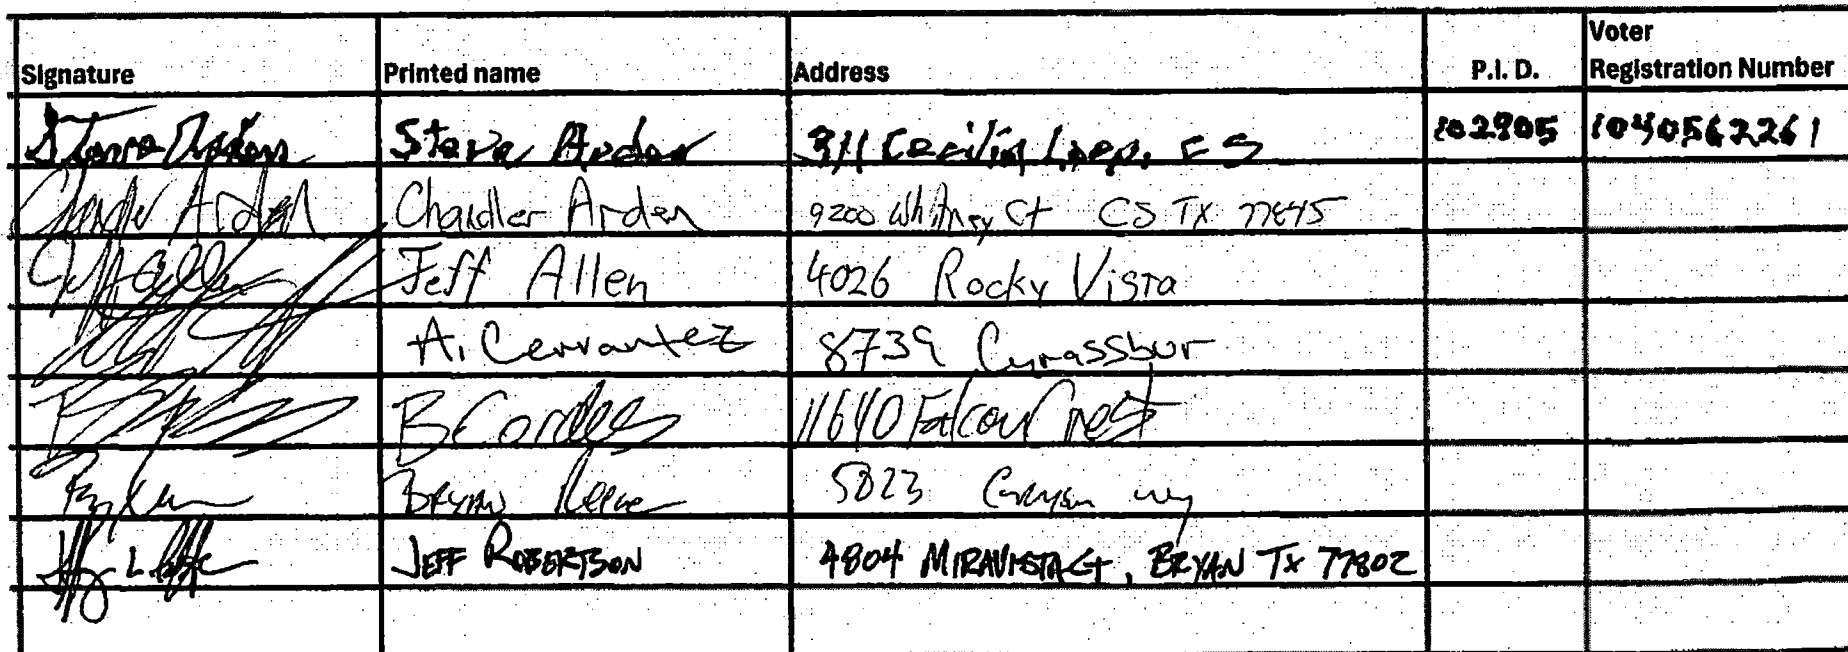 Signature Printed name Address P.I. D. Voter Registration Number
Steve Arden Steve Arden 311 Cecilia Loop, CS 102905 1040562261
Chandler Arden Chandler Arden 9200 Whitney Ct CS TX 77845
Jeff Allen Jeff Allen 4026 Rocky Vista
A. Cervantez 8739
B Cordes 11640 Falcon Crest
Bryan 5823
JEFF ROBERTSON 4804 MIRAVISTA Ct, BRYAN Tx 77802